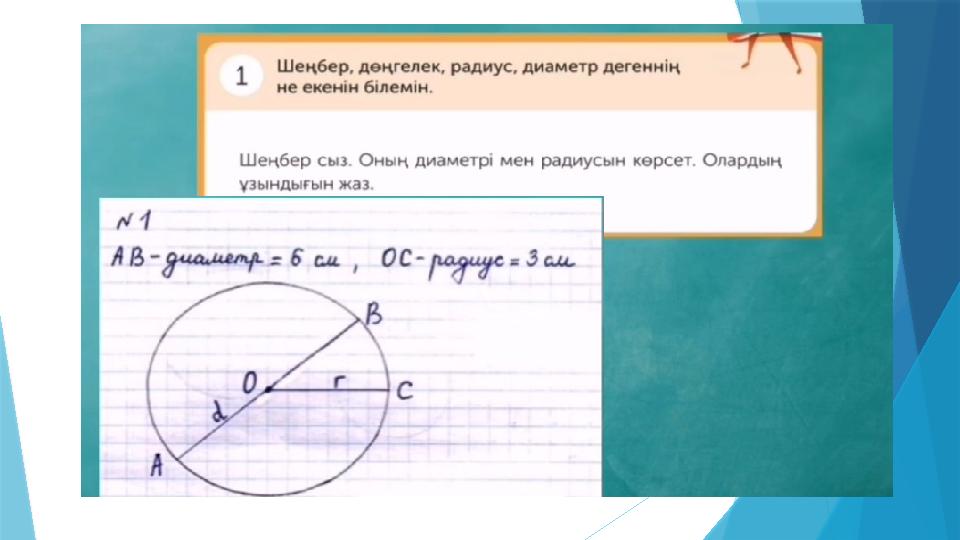 1
Шеңбер, дөңгелек, радиус, диаметр дегеннің
не екенін білемін.
Шеңбер сыз. Оның диаметрі мен радиусын көрсет. Олардың
ұзындығын жаз.
№1
AB - диаметр = 6 см , OC - радиус = 3 см
B
O r C
d
A